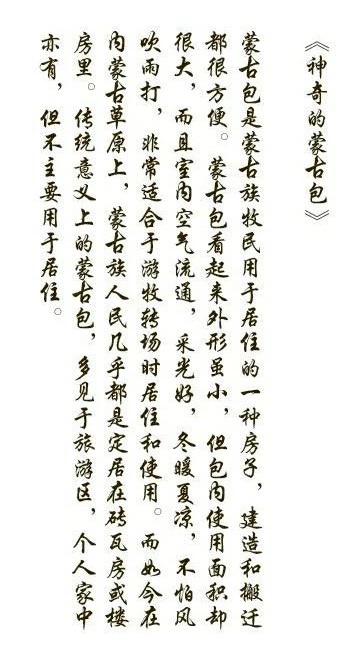 《神奇的蒙古包》
蒙古包是蒙古族牧民用于居住的一种房子，建造和搬迁
都很方便。蒙古包看起来外形虽小，但包内使用面积却
很大，而且室内空气流通，采光好，冬暖夏凉，不怕风
吹雨打，非常适合于游牧转场时居住和使用。而如今在
内蒙古草原上，蒙古族人民几乎都是定居在砖瓦房或楼
房里。传统意义上的蒙古包，多见于旅游区，个人家中
亦有，但不主要用于居住。